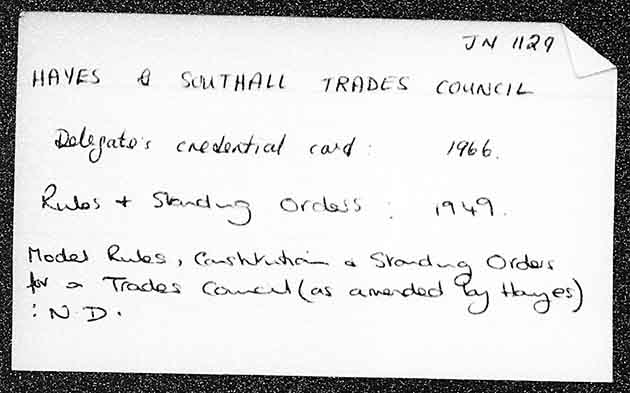 JN 1129
HAYES & SOUTHALL TRADES COUNCIL
Delegate's credential card : 1966.
Rules + Standing Orders : 1949.
Model Rules, Constitution & Standing Orders
for a Trades Council (as amended by Hayes)
: N.D.